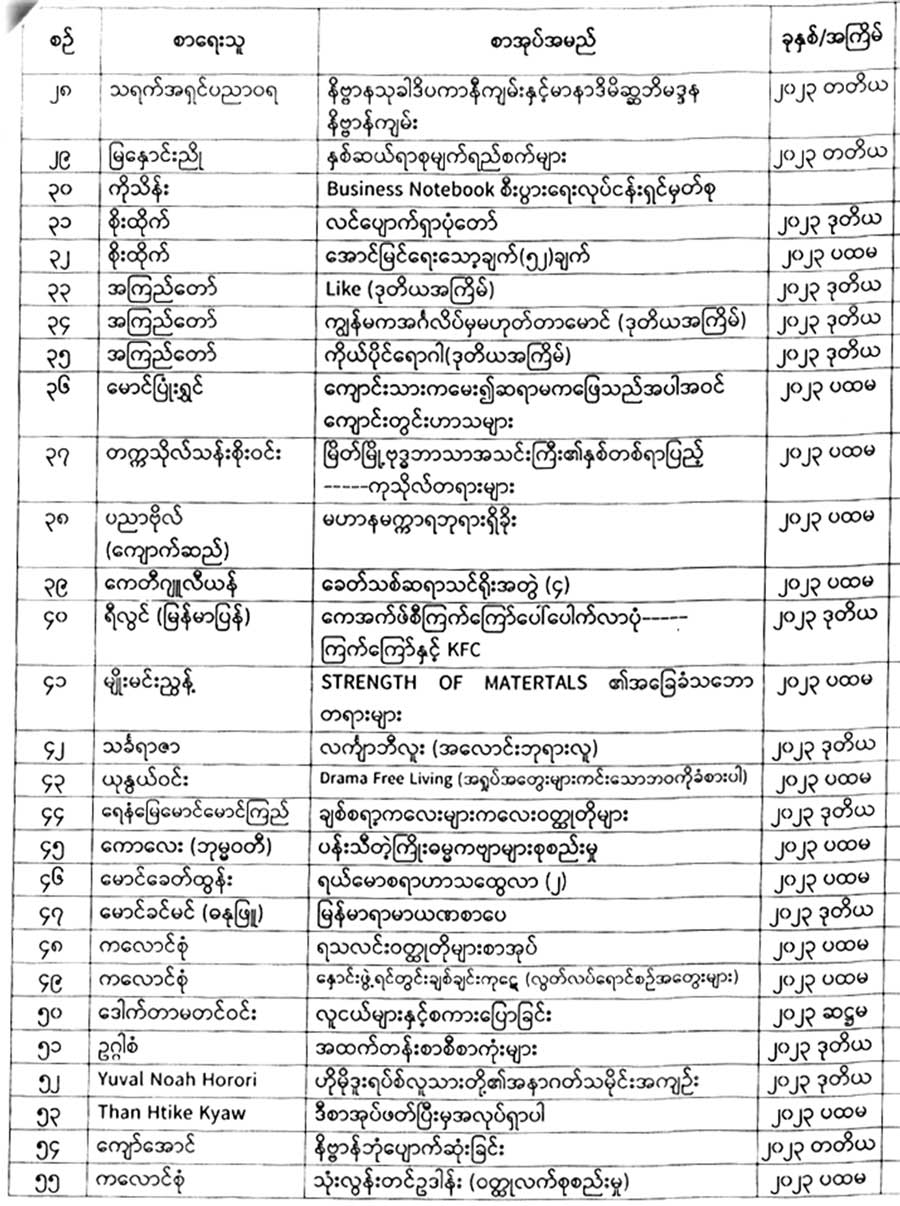 စဉ် စာရေးသူ စာအုပ်အမည် ခုနှစ်/အကြိမ်
၂၈ သရက်အရှင်ပညာဝရ နိဗ္ဗာနသုခါဒီပကာနီကျမ်းနှင့်မာနာဒိမိဆ္ဆဘိမဒ္ဒန ၂၀၂၃ တတိယ
နိဗ္ဗာန်ကျမ်း
၂၉ မြနှောင်းညို နှစ်ဆယ်ရာစုမျက်ရည်စက်များ ၂၀၂၃ တတိယ
၃၀ ကိုသိန်း Business Notebook စီးပွားရေးလုပ်ငန်းရှင်မှတ်စု
၃၁ စိုးထိုက် လင်ပျောက်ရှာပုံတော် ၂၀၂၃ ဒုတိယ
၃၂ စိုးထိုက် အောင်မြင်ရေးသော့ချက်(၅၂)ချက် ၂၀၂၃ ပထမ
၃၃ အကြည်တော် Like (ဒုတိယအကြိမ်) ၂၀၂၃ ဒုတိယ
၃၄ အကြည်တော် ကျွန်မကအင်္ဂလိပ်မှမဟုတ်တာမောင် (ဒုတိယအကြိမ်) ၂၀၂၃ ဒုတိယ
၃၅ အကြည်တော် ကိုယ်ပိုင်ရောဂါ(ဒုတိယအကြိမ်) ၂၀၂၃ ဒုတိယ
၃၆ မောင်ပြုံးရွှင် ကျောင်းသားကမေး၍ဆရာမကဖြေသည်အပါအဝင် ၂၀၂၃ ပထမ
ကျောင်းတွင်းဟာသများ
၃၇ တက္ကသိုလ်သန်းစိုးဝင်း မြိတ်မြို့ဗုဒ္ဓဘာသာအသင်းကြီး၏နှစ်တစ်ရာပြည့် ၂၀၂၃ ပထမ
-----ကုသိုလ်တရားများ
၃၈ ပညာဗိုလ် မဟာနမက္ကာရဘုရားရှိခိုး ၂၀၂၃ ပထမ
(ကျောက်ဆည်)
၃၉ ကေတီဂျူလီယန် ခေတ်သစ်ဆရာသင်ရိုးအတွဲ (၄) ၂၀၂၃ ပထမ
၄၀ ရီလွင် (မြန်မာပြန်) ကေအက်ဖ်စီကြက်ကြော်ပေါ်ပေါက်လာပုံ----- ၂၀၂၃ ဒုတိယ
ကြက်ကြော်နှင့် KFC
၄၁ မျိုးမင်းညွန့် STRENGTH OF MATERTALS ၏အခြေခံသဘော ၂၀၂၃ ပထမ
တရားများ
၄၂ သင်္ခရာဇာ လင်္ကျာဘီလူး (အလောင်းဘုရားလူ) ၂၀၂၃ ဒုတိယ
၄၃ ယုနွယ်ဝင်း Drama Free Living (အရှုပ်အတွေးများကင်းသောဘဝကိုခံစားပါ) ၂၀၂၃ ပထမ
၄၄ ရေနံမြေမောင်မောင်ကြည် ချစ်စရာ့ကလေးများကလေးဝတ္ထုတိုများ ၂၀၂၃ ဒုတိယ
၄၅ ကောလေး (ဘုမ္မဝတီ) ပန်းသီတဲ့ကြိုးဓမ္မကဗျာများစုစည်းမှု ၂၀၂၃ ပထမ
၄၆ မောင်ခေတ်ထွန်း ရယ်မောစရာဟာသထွေလာ (၂) ၂၀၂၃ ပထမ
၄၇ မောင်ခင်မင် (ဓနုဖြူ) မြန်မာရာမာယဏစာပေ ၂၀၂၃ ဒုတိယ
၄၈ ကလောင်စုံ ရသလင်းဝတ္ထုတိုများစာအုပ် ၂၀၂၃ ပထမ
၄၉ ကလောင်စုံ နှောင်းဖွဲ့ရင်တွင်းချစ်ချင်းကုဋေ (လွတ်လပ်ရောင်စဉ်အတွေးများ) ၂၀၂၃ ပထမ
၅၀ ဒေါက်တာမတင်ဝင်း လူငယ်များနှင့်စကားပြောခြင်း ၂၀၂၃ ဆဋ္ဌမ
၅၁ ဥဂ္ဂါစံ အထက်တန်းစာစီစာကုံးများ ၂၀၂၃ ဒုတိယ
၅၂ Yuval Noah Horori ဟိုမိုဒူးရပ်စ်လူသားတို့၏အနာဂတ်သမိုင်းအကျဉ်း ၂၀၂၃ ဒုတိယ
၅၃ Than Htike Kyaw ဒီစာအုပ်ဖတ်ပြီးမှအလုပ်ရှာပါ ၂၀၂၃ ပထမ
၅၄ ကျော်အောင် နိဗ္ဗာန်ဘုံပျောက်ဆုံးခြင်း ၂၀၂၃ တတိယ
၅၅ ကလောင်စုံ သုံးလွန်းတင်ဥဒါန်း (ဝတ္ထုလက်စုစည်းမှု) ၂၀၂၃ ပထမ